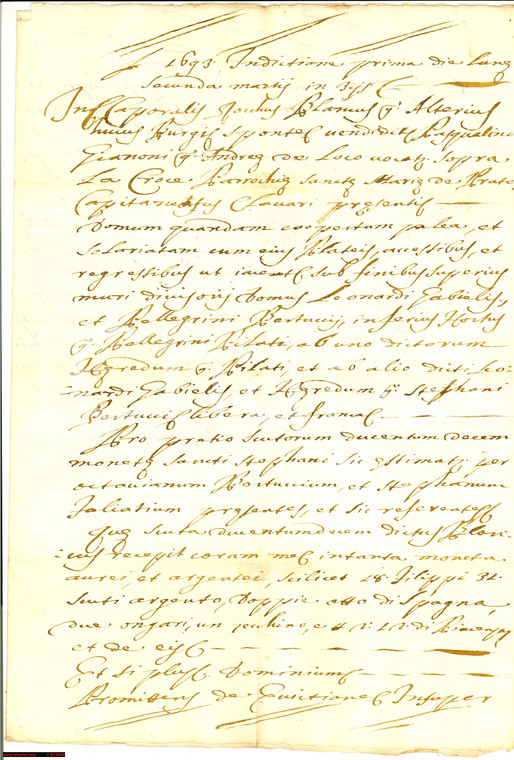 1693 Indictione prima die Lune
secunda martij in 3ijs
Ins Caporalis Blancus q. Alterius
huius Burgi sponte vendidit Pasqualino
Gianoni q. Andree de Loco vocat. Sopra
La Croce Parrochie Sancte Marie de Prato
Capitaneatus Clavari presentis
Domum quandam coopertam palea, et
solariatam cum eius Plateis, accessibus, et
regressibus ut iacet sub finibus superius
muri divisorij Domus Leonardi Gabielis,
et Pellegrini Bertuccij, inferius Hortus
q. Pellegrini Pilati, ab uno dictorum
Heredum q. Pilati, et ab alio dicti Leo
nardi Gabielis, et Heredum q. Stephani
Bertucci libera, et franca
Pro pratio scutorum ducentum decem
monete Sancti Stephani sic estimat. per
octavianum Bertuccium, et Stephanum
presentes, et sic referentes
Que scuta ducentumdecem dictus
recepit coram me in tanta moneta
aurei, et argentei, scilicet 18 Filippi 31
scuti argento, Doppie otto di Spagna,
due ongari, un zechino, e
et de eis
Et si plus Dominium
Promittens de Evitione Insuper